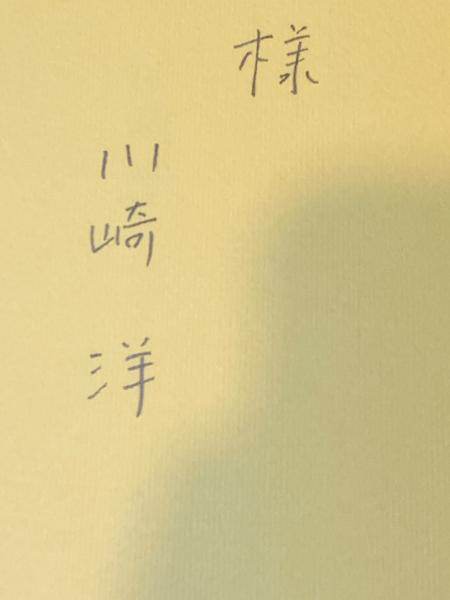 様
川崎 洋